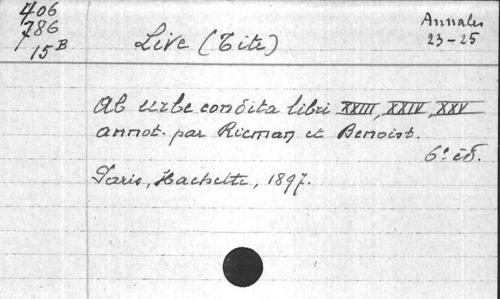 406
786
15 B
Live (Tite)
Annales
23-25
Ab urbe condita libri XXIII, XXIV, XXV
annot. par Rieman et Benoist.
6e éd.
Paris, Hachette, 1897.